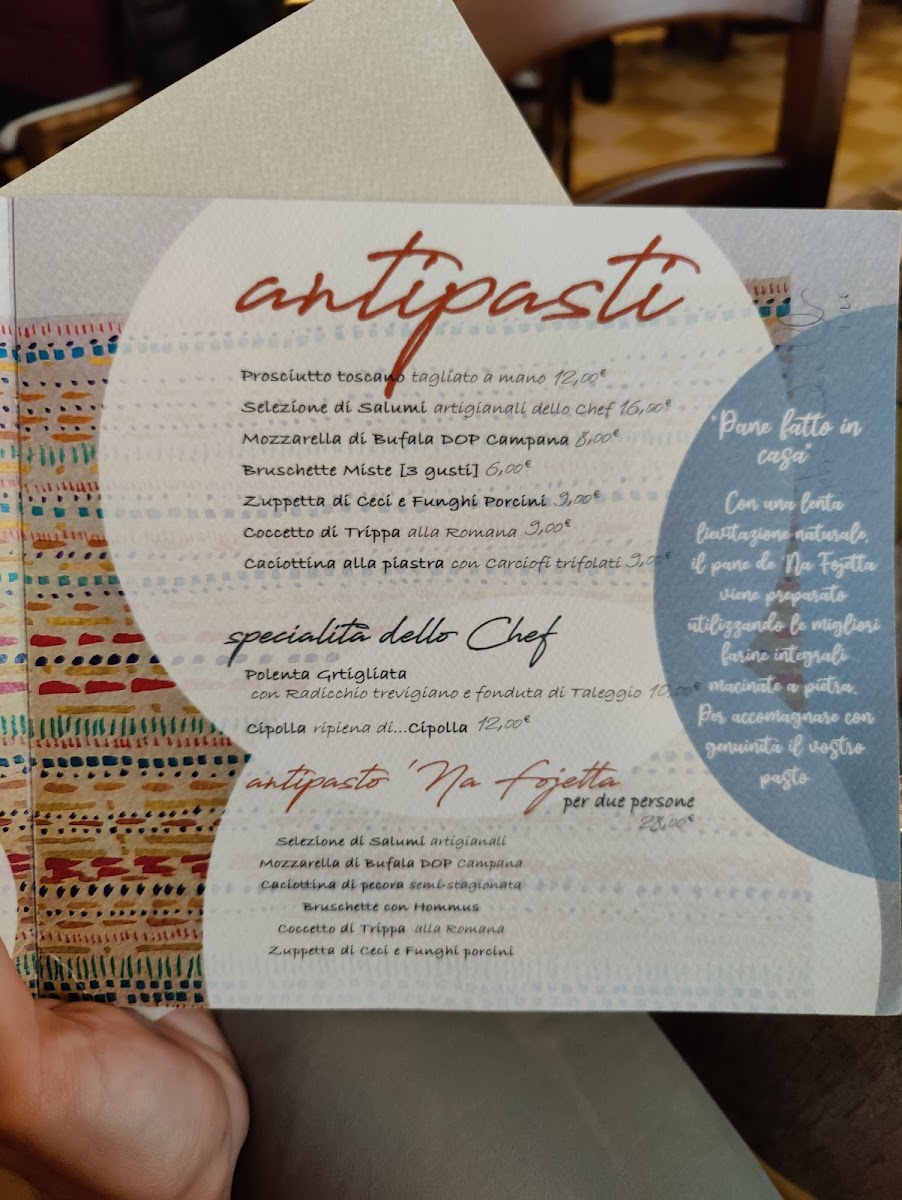 antipasti
Prosciutto toscano tagliato a mano 12,00€
Selezione di Salumi artigianali dello Chef 16,00€
Mozzarella di Bufala DOP Campana 8,00€
Bruschette Miste [3 gusti] 6,00€
Zuppetta di Ceci e Funghi Porcini 9,00€
Coccetto di Trippa alla Romana 9,00€
Caciottina alla piastra con Carciofi trifolati 9,00€
specialità dello Chef
Polenta Grtigliata
con Radicchio trevigiano e fonduta di Taleggio 10,00€
Cipolla ripiena di...Cipolla 12,00€
antipasto 'Na Fojetta
per due persone
28,00€
Selezione di Salumi artigianali
Mozzarella di Bufala DOP Campana
Caciottina di pecora semi-stagionata
Bruschette con Hommus
Coccetto di Trippa alla Romana
Zuppetta di Ceci e Funghi porcini
"Pane fatto in
casa"
Con una lenta
lievitazione naturale,
il pane de Na Fojetta
viene preparato
utilizzando le migliori
farine integrali
macinate a pietra.
Per accomagnare con
genuinità il vostro
pasto